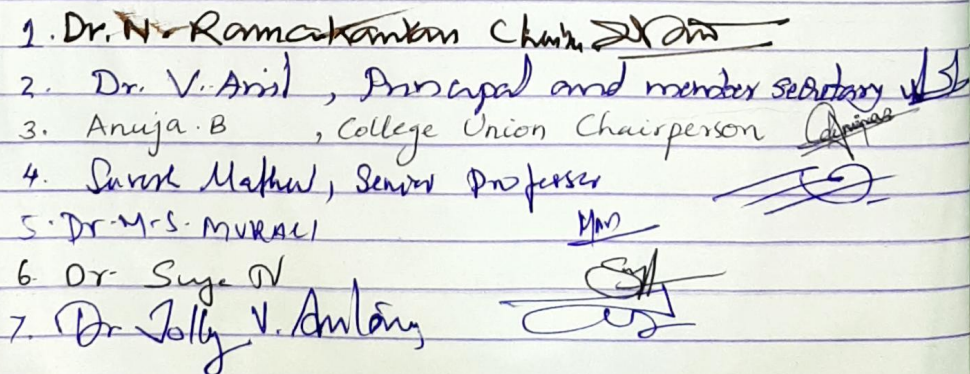 1. Dr. N. Ramakantan Chairman
2. Dr. V. Anil, Principal and member secretary
3. Anuja.B , College Union Chairperson
4. Suresh Mathew, Senior Professor
5. Dr. M. S. MURALI
6. Dr. Suja N
7. Dr Jolly V. Antony